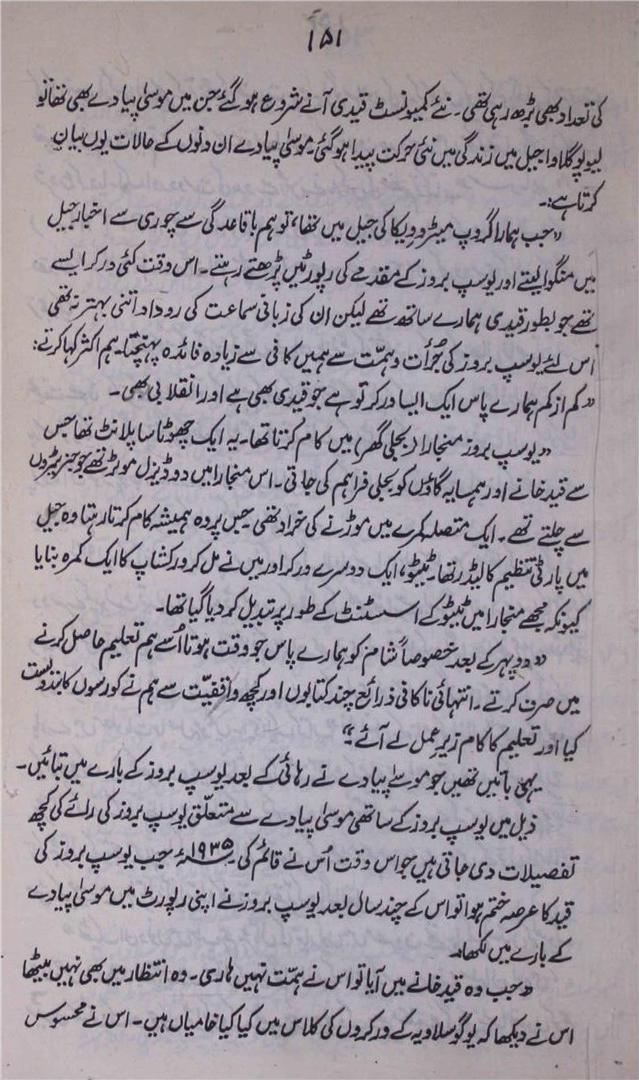 ۱۵۱
کی تعداد بھی بڑھ رہی تھی۔ نئے کمیونسٹ قیدی آنے شروع ہو گئے جن میں موسیٰ پیادے بھی تھا تو
لیپوگلاوا جیل میں زندگی میں نئی حرکت پیدا ہو گئی۔ موسیٰ پیادے ان دنوں کے حالات یوں بیان
کرتا ہے:۔
"جب ہمارا گروپ میٹروویکا کی جیل میں تھا، تو ہم باقاعدگی سے چوری سے اخبار جیل
میں منگوا لیتے اور یوسپ بروز کے مقدمے کی رپورٹیں پڑھتے رہتے۔ اس وقت کئی ورکر ایسے
تھے جو بطور قیدی ہمارے ساتھ تھے لیکن ان کی زبانی سماعت کی روداد اتنی بہتر نہ تھی
اس لئے یوسپ بروز کی جُرأت و ہمّت سے ہمیں کافی سے زیادہ فائدہ پہنچتا۔ ہم اکثر کہا کرتے:
"کم از کم ہمارے پاس ایک ایسا ورکر تو ہے جو قیدی بھی ہے اور انقلابی بھی۔
"یوسپ بروز منجارا (بجلی گھر) میں کام کرتا تھا۔ یہ ایک چھوٹا سا پلانٹ تھا جس
سے قید خانے اور ہمسایہ گاؤں کو بجلی فراہم کی جاتی۔ اس منجارا میں دو ڈیزل موٹر تھے جو جنریٹروں
سے چلتے تھے۔ ایک متصلہ کمرے میں موڑنے کی خراد تھی جس پر وہ ہمیشہ کام کرتا رہتا وہ جیل
میں پارٹی تنظیم کا لیڈر تھا۔ ٹیٹو، ایک دوسرے ورکر اور میں نے مل کر ورکشاپ کا ایک کمرہ بنایا
کیونکہ مجھے منجارا میں ٹیٹو کے اسسٹنٹ کے طور پر تبدیل کر دیا گیا تھا۔
"دوپہر کے بعد خصوصاً شام کو ہمارے پاس جو وقت ہوتا اُسے ہم تعلیم حاصل کرنے
میں صرف کرتے۔ انتہائی ناکافی ذرائع چند کتابوں اور کچھ واقفیّت سے ہم نے کورسوں کا بندوبست
کیا اور تعلیم کا کام زیرِ عمل لے آئے۔"
یہی باتیں تھیں جو موسیٰ پیادے نے رہائی کے بعد یوسپ بروز کے بارے میں بتائیں۔
ذیل میں یوسپ بروز کے ساتھی موسیٰ پیادے سے متعلّق یوسپ بروز کی رائے کی کچھ
تفصیلات دی جاتی ہیں جو اس وقت اُس نے قائم کی۔ ۱۹۳۵ء جب یوسپ بروز کی
قید کا عرصہ ختم ہوا تو اس کے چند سال بعد یوسپ بروز نے اپنی رپورٹ میں موسیٰ پیادے
کے بارے میں لکھا۔
"جب وہ قید خانے میں آیا تو اس نے ہمّت نہیں ہاری۔ وہ انتظار میں بھی نہیں بیٹھا
اس نے دیکھا کہ یوگوسلاویہ کے ورکروں کی کلاس میں کیا کیا خامیاں ہیں۔ اس نے محسوس